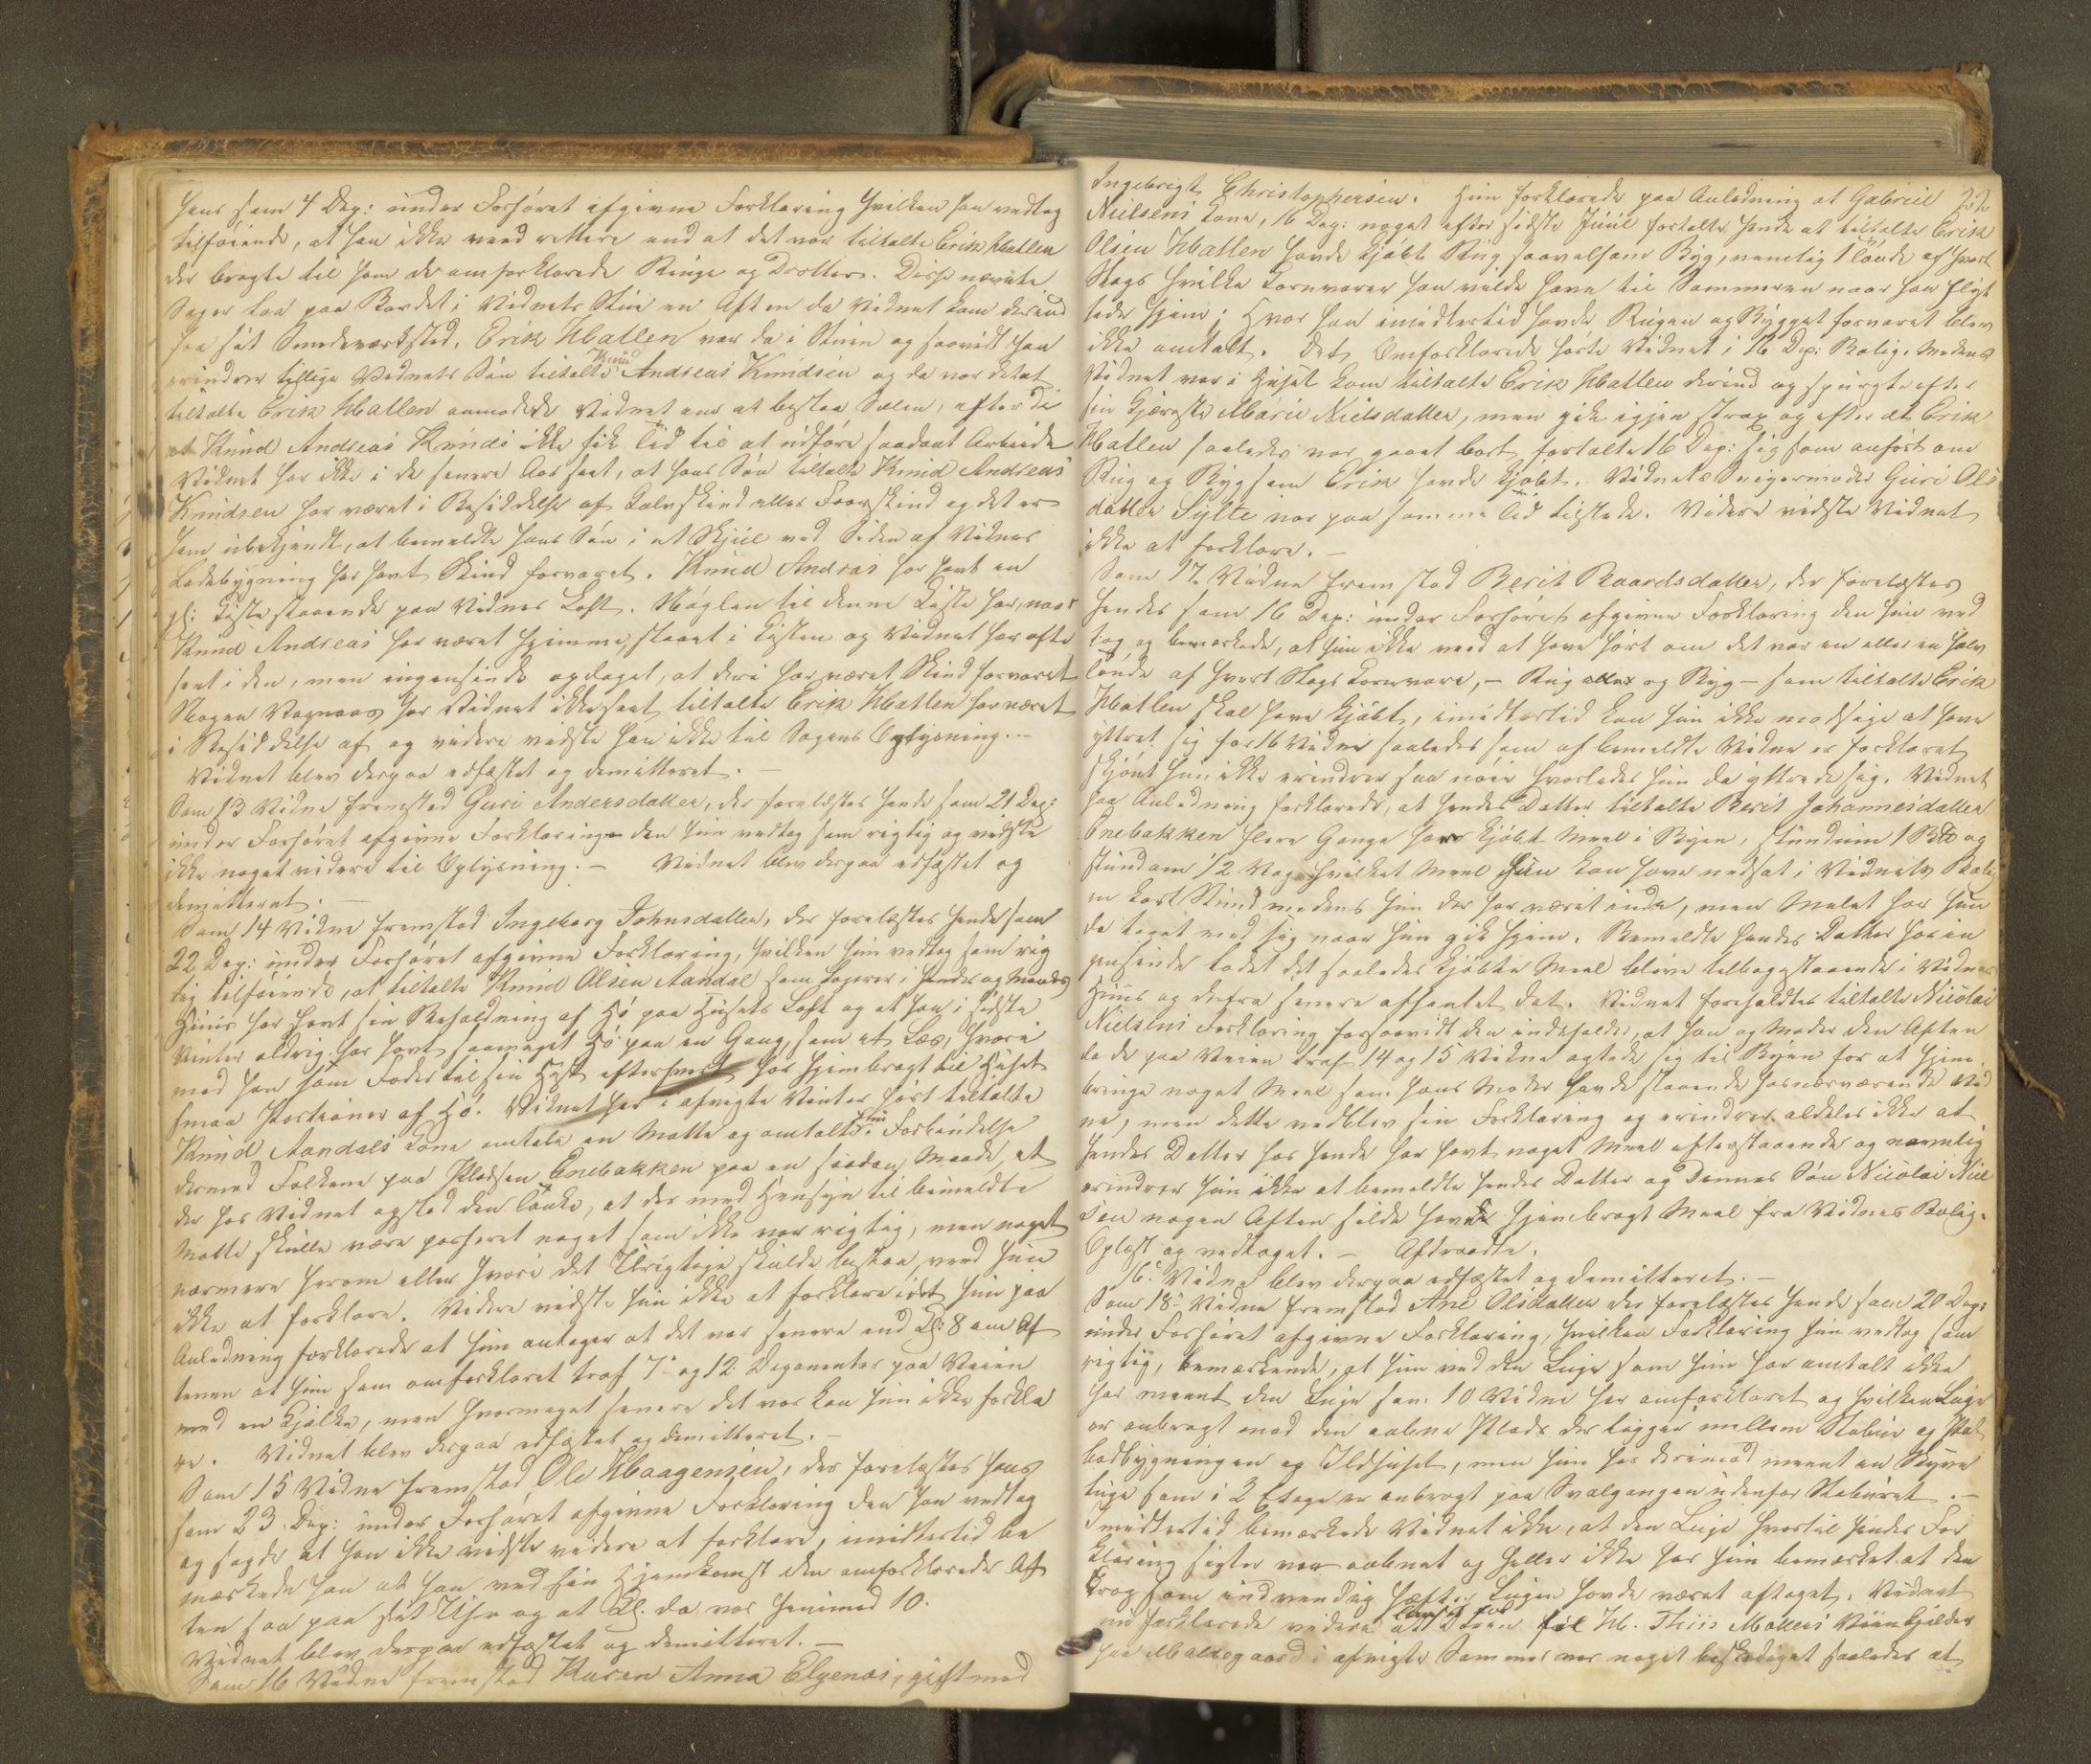 hans som 4 Dep: under Forhøret afgivne Forklaring hvilken han vedtog
tilføiende, at han ikke veed rettere end at det var tiltalte Erik Hatlen
der bragte til ham de omforklarede Ringe og Dretter. Disse nævnte
Sager laa paa Bordet i Vidnets Stue en Aften da Vidnet kom derind
fra sit Smedeværksted. Erik Hatlen var da i Stuen og saavidt han
erindrer tillige Vidnets Søn tiltalte Knud Andreas Knudsen og da var det at
tiltalte Erik Hatlen anmodede Vidnet om at beslaa Sælen, efterdi
at Knud Andreas Knuds ikke fik Tid til at udføre saadant Arbeide
Vidnet har ikke i de senere Aar seet, at hans Søn tiltalte Knud Andreas
Knudsen har været i Besiddelse af Kalveskind eller Faareskind og det er
ham ubekjendt, at bemeldte hans Søn i et Skjul ved Siden af Vidnes
Ladebygning har havt Skind forvaret. Knud Andreas har havt en
gl: Kiste staaende paa Vidnes Loft. Nøglen til denne Kiste har, naar
Knud Andreas har været hjemme, staaet i Kisten og Vidnet har ofte
seet i den, men ingensinde opdaget, at deri har været Skind forvaret
Nogen Vognaas har Vidnet ikke seet tiltalte Erik Hatlen har været
i Besiddelse af og videre vidste han ikke til Sagens Oplysning. –
Vidnet blev derpaa edfæstet og demitteret. –
Som 13 Vidne fremstod Guri Andersdatter, der forelæstes hende som 21 Dep:
under Forhøret afgivne Forklaring den hun vedtog som rigtig og vidste
ikke noget videre til Oplysning. – Vidnet blev derpaa edfæstet og
demitteret. –
Som 14 Vidne fremstod Ingeborg Johnsdatter, der forelæstes hende som
22 Dep: under Forhøret afgivne Forklaring, hvilken hun vedtog som rig
tig tilføiende, at tiltalte Knud Olsen Aandal som logerer i hendes og Mands
Huus har havt sin Beholdning af Hø paa Husets Loft og at han i sidste
Vinter aldrig har havt saameget Hø paa en Gang, som et Læs, hvori
mod han som Foder til sin Hest efterhvert har hjembragt til Huset
smaa Portioner af Hø. Vidnet har i afvigte Vinter hørt tiltalte
Knud Aandals Kone omtale en Møtte og omtalte hun i Forbindelse
dermed Folkene paa Pladsen Enebakken paa en saadan Maade, at
der hos Vidnet opstod den Tanke, at der med Hensyn til bemeldte
Møtte skulle være passeret noget som ikke var rigtig, men noget
nærmere herom eller hvori det Urigtige skulde bestaa, veed hun
ikke at forklare. Videre vidste hun ikke at forklare idet hun paa
Anledning forklarede at hun antager at det var senere end Kl: 8 om Af
tenen at hun som omforklaret traf 7de og 12 Deponenter paa Veien
med en Kjælke, men hvormeget senere det var kan hun ikke forkla
re. Vidnet blev derpaa edfæstet og demitteret. –
Som 15 Vidne fremstod Ole Haagensen, der forelæstes hans
som 23. Dep: under Forhøret afgivne Forklaring den han vedtog
og sagde at han ikke vidste videre at forklare, imidlertid be
mærkede han at han ved sin Hjemkomst den omforklarede Af
ten saa paa sit Uhr og at Kl. da var henimod 10.
Vidnet blev derpaa edfæstet og demitteret. –
Som 16 Vidne fremstod Karen Anna Elgenæs, gift med
22
Ingebrigt Christophersen. Hun forklarede paa Anledning at Gabriel
Nielsens Kone, 16 Dep: noget efter sidste Juul fortalte hende at tiltalte Erik
Olsen Hatlen havde kjøbt Rug saavelsom Byg, nemlig 1 Tønde af hvert
Slags hvilke Kornvarer han vilde have til Sommeren naar han flyt
tede hjem; hvor han imidlertid havde Rugen og Bygget forvaret blev
ikke omtalt. Det Omforklarede hørte Vidnet i 16 Dep: Bolig. Medens
Vidnet var i Huset kom tiltalte Erik Hatlen derind og spurgte efter
sin Kjæreste Marie Nielsdatter, men gik igjen strax og efter at Erik
Hatlen saaledes var gaaet bort fortalte 16 Dep: sig som anført om
Rug og Byg som Erik havde kjøbt. Vidnets Svigermoder Guri Ols
datter Sylte var paa samme Tid tilstede. Videre vidste Vidnet
ikke at forklare. –
Som 17de Vidne fremstod Berit Baardsdatter, der forelæstes
hendes som 16 Dep: under Forhøret afgivne Forklaring den hun ved
tog og bemærkede, at hun ikke veed at have hørt om det var en eller en halv
Tønde af hvert Slags Kornvare, – Rug eller og Byg – som tiltalte Erik
Hatlen skal have kjøbt, imidlertid kan hun ikke modsige at have
yttret sig for 16 Vidne saaledes som af bemeldte Vidne er forklaret
skjønt hun ikke erindrer saa nøie hvorledes hun da yttrede sig. Vidnet
paa Anledning forklarede, at hendes Datter tiltalte Berit Johannesdatter
Enebakken flere Gange har kjøbt Meel i Byen, stundom 1 Bd og
stundom 1/2 Vog hvilket Meel hun kan have nedsat i Vidnets Bolig
en kort Stund medens hun der har været inde, men Melet har hun
da taget med sig naar hun gik hjem. Bemeldte hendes Datter har in
gensinde ladet det saaledes kjøbte Meel blive tilbagestaaende i Vidnes
Huus og derfra senere afhentet det. Vidnet foreholdtes tiltalte Nicolai
Nielsens Forklaring forsaavidt den indeholder, at han og Moder den Aften
da de paa Veien traf 14 og 15 Vidne agtede sig til Byen for at hjem
bringe noget Meel som hans Moder havde staaende hos nærværende Vid
ne, men dette vedblev sin Forklaring og erindrer aldeles ikke at
hendes Datter hos hende har havt noget Meel efterstaaende og navnlig
erindrer hun ikke at bemeldte hendes Datter og Dennes Søn Nicolai Niel
sen nogen Aften silde havde hjembragt Meel fra Vidnes Bolig.
Oplæst og vedtaget. – Aftraadte.
16de Vidne blev derpaa edfæstet og demitteret. –
Som 18de Vidne fremstod Ane Olsdatter der forelæstes hende som 20 Dep:
under Forhøret afgivne Forklaring, hvilken Forklaring hun vedtog som
rigtig, bemærkende, at hun ved den Luge som hun har omtalt ikke
har meent den Luge som 10 Vidne har omforklaret og hvilken Luge
er anbragt mod den aabne Plads der ligger mellem Stabur og Stal
bodbygningen og Ildhuset, men hun har derimod meent en Skyve
luge som i 2 Etage er anbragt paa Svalgangen udenfor Staburet. –
Imidlertid bemærkede Vidnet ikke, at den Luge hvortil hendes For
klaring sigter var aabnet og heller ikke har hun bemærket at den
Krog som indvendig hæfter Lugen havde været aftaget. Vidnet
nu forklarede videre at Laasen for Døren til H. Thiis Møllers Viinkjelder
paa Moldegaard i afvigte Sommer var noget beskadiget saaledes at